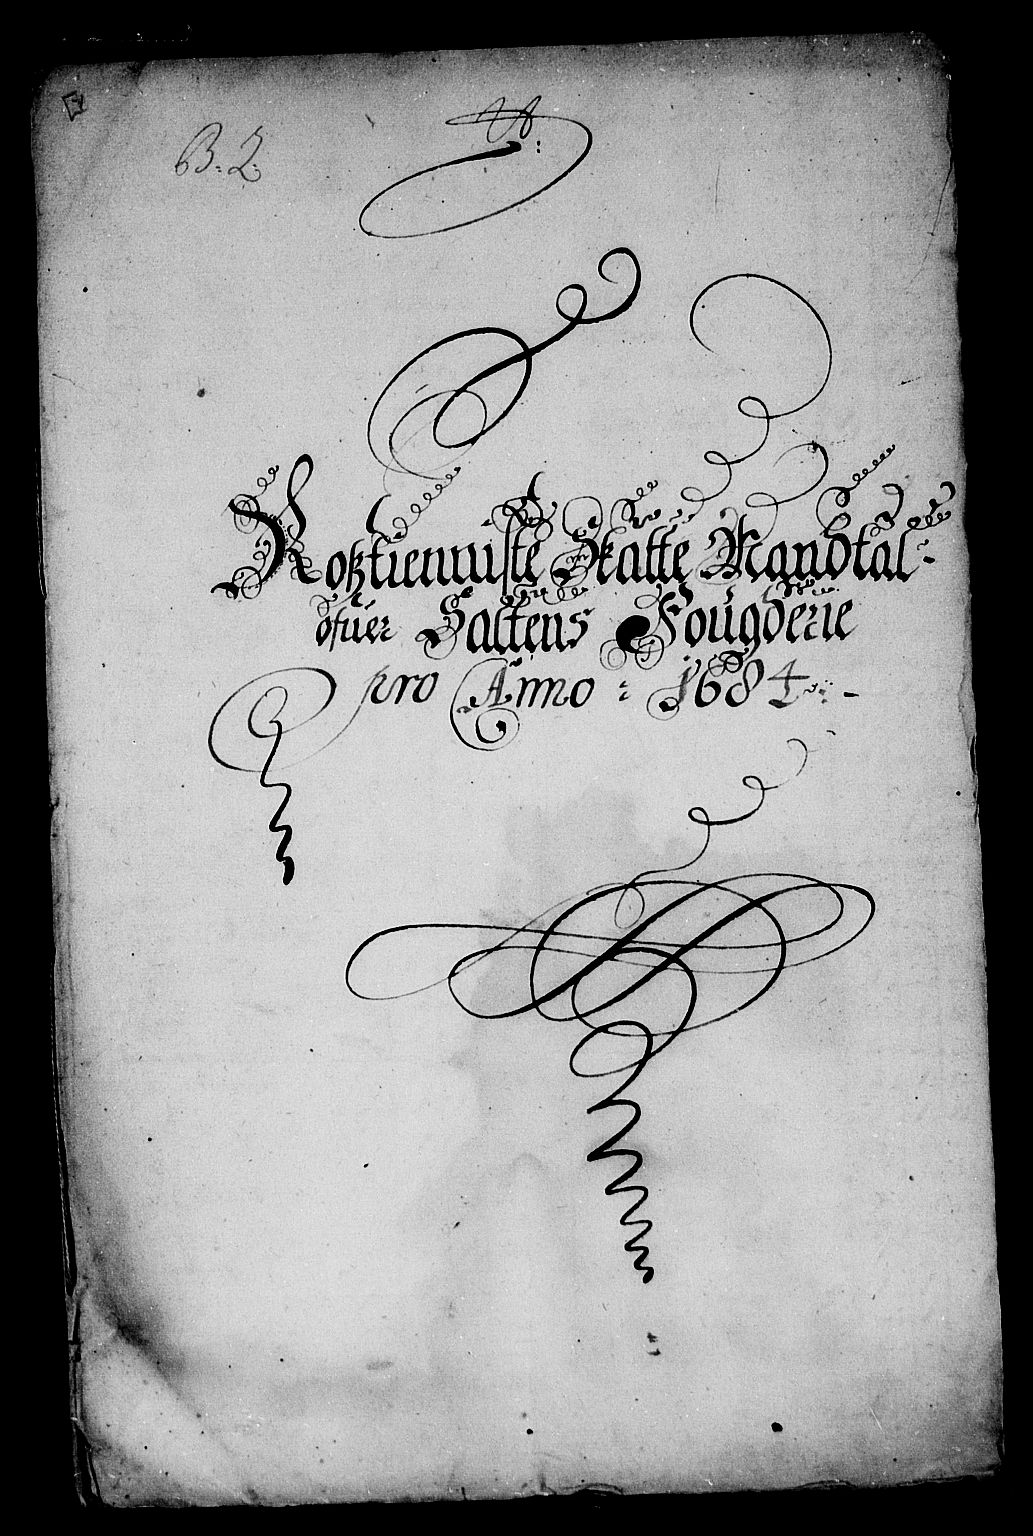 N:
B: 2:
Roßtienniste Skatte Mandtal
ofuer Saltens Fougderie
pro Anno: 1684:-